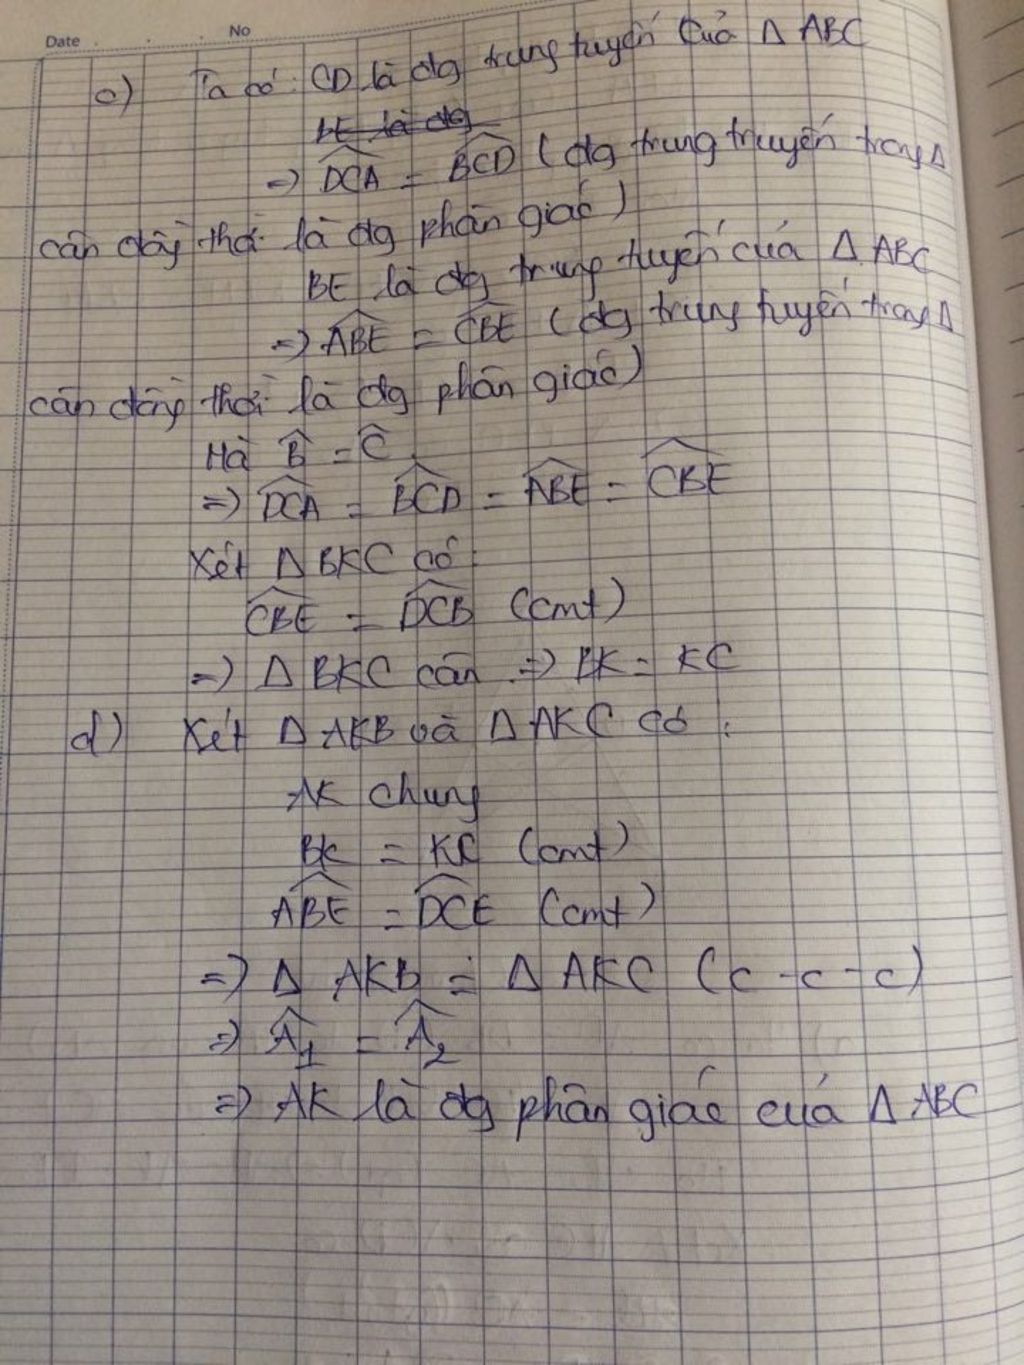 Date . . . No
c) Ta có: CD là đg trung tuyến của Δ ABC
BE là đg
=) \widehat{DCA} = \widehat{BCD} (đg trung truyến trong Δ
cân đồng thời là đg phân giác)
BE là đg trung tuyến của Δ ABC
=) \widehat{ABE} = \widehat{CBE} (đg trung tuyến trong Δ
cân đồng thời là đg phân giác)
Mà \widehat{B} = \widehat{C}
=) \widehat{DCA} = \widehat{BCD} = \widehat{ABE} = \widehat{CBE}
Xét Δ BKC có:
\widehat{CBE} = \widehat{DCB} (cmt)
=) Δ BKC cân =) BK = KC
d) Xét Δ AKB và Δ AKC có:
AK chung
BK = KC (cmt)
\widehat{ABE} = \widehat{DCE} (cmt)
=) Δ AKB = Δ AKC (c - c - c)
=) \widehat{A}_1 = \widehat{A}_2
=) AK là đg phân giác của Δ ABC